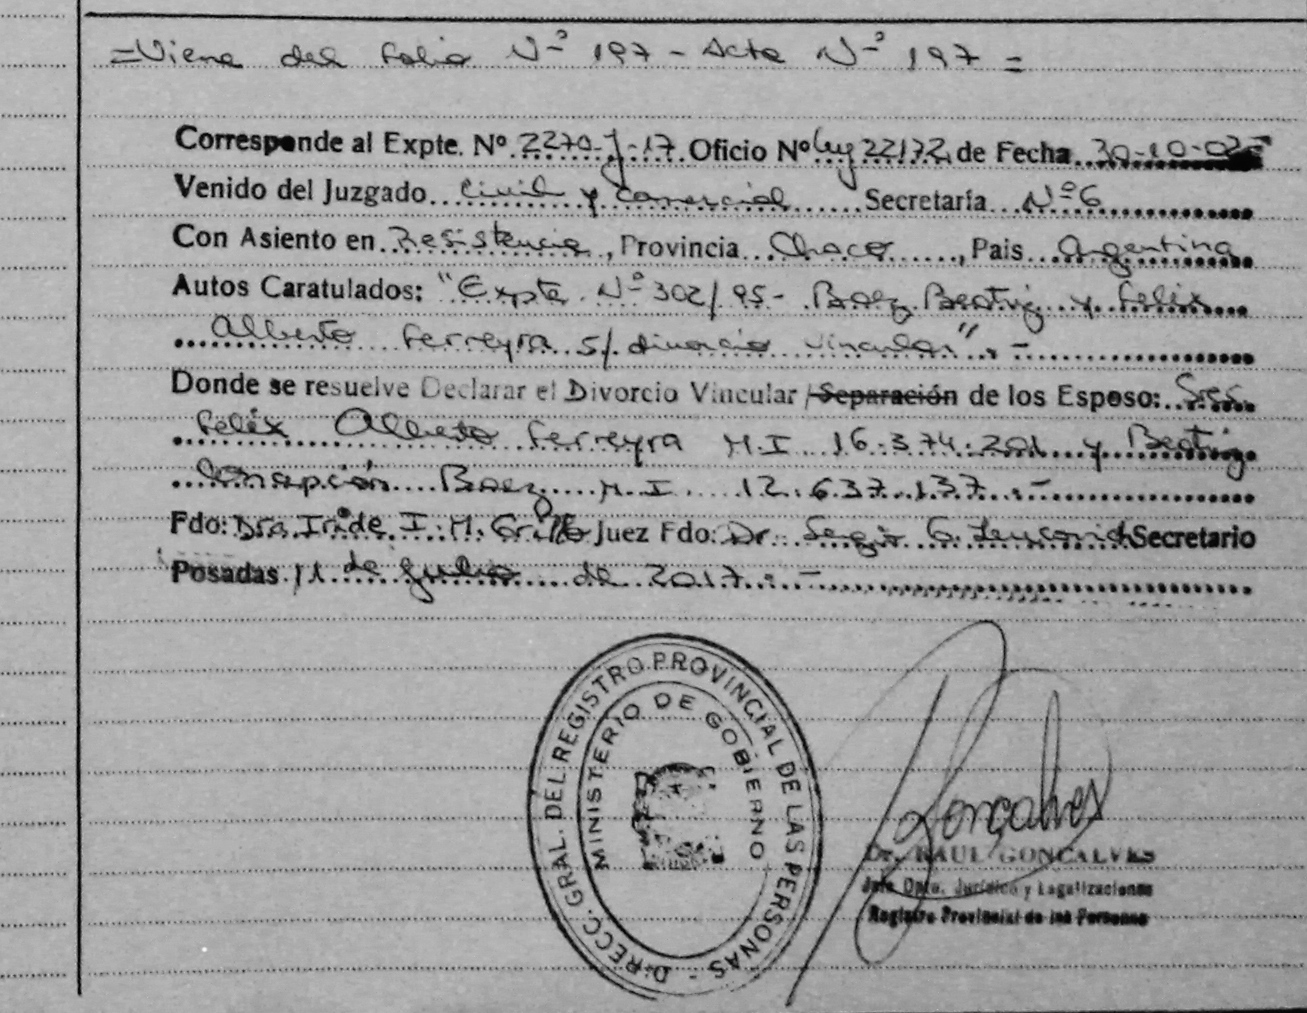 =Viene del folio Nº 197 - Acta Nº 197 =
Corresponde al Expte. Nº 2270-J-17 Oficio Nº Ley 22172 de Fecha 30-10-02
Venido del Juzgado Civil y Comercial Secretaría Nº 6
Con Asiento en Resistencia, Provincia Chaco, Pais Argentina
Autos Caratulados: "Expte. Nº 302/95- Baez Beatriz y Felix
Alberto Ferreyra s/. divorcio vincular". -
Donde se resuelve Declarar el Divorcio Vincular /Separación de los Esposo: Sres.
Felix Alberto Ferreyra M.I 16.374.201 y Beatriz
Concepción Baez M.I. 12.637.137. -
Fdo: Dra. Iride I. M. Grillo Juez Fdo: Dr. Sergio Secretario
Posadas 11 de Julio de 2017. -
DIRECC. GRAL. DEL REGISTRO PROVINCIAL DE LAS PERSONAS -
MINISTERIO DE GOBIERNO
Gonçalves
Dr. RAUL GONCALVES
Jefe Dpto. Jurídico y Legalizaciones
Registro Provincial de las Personas